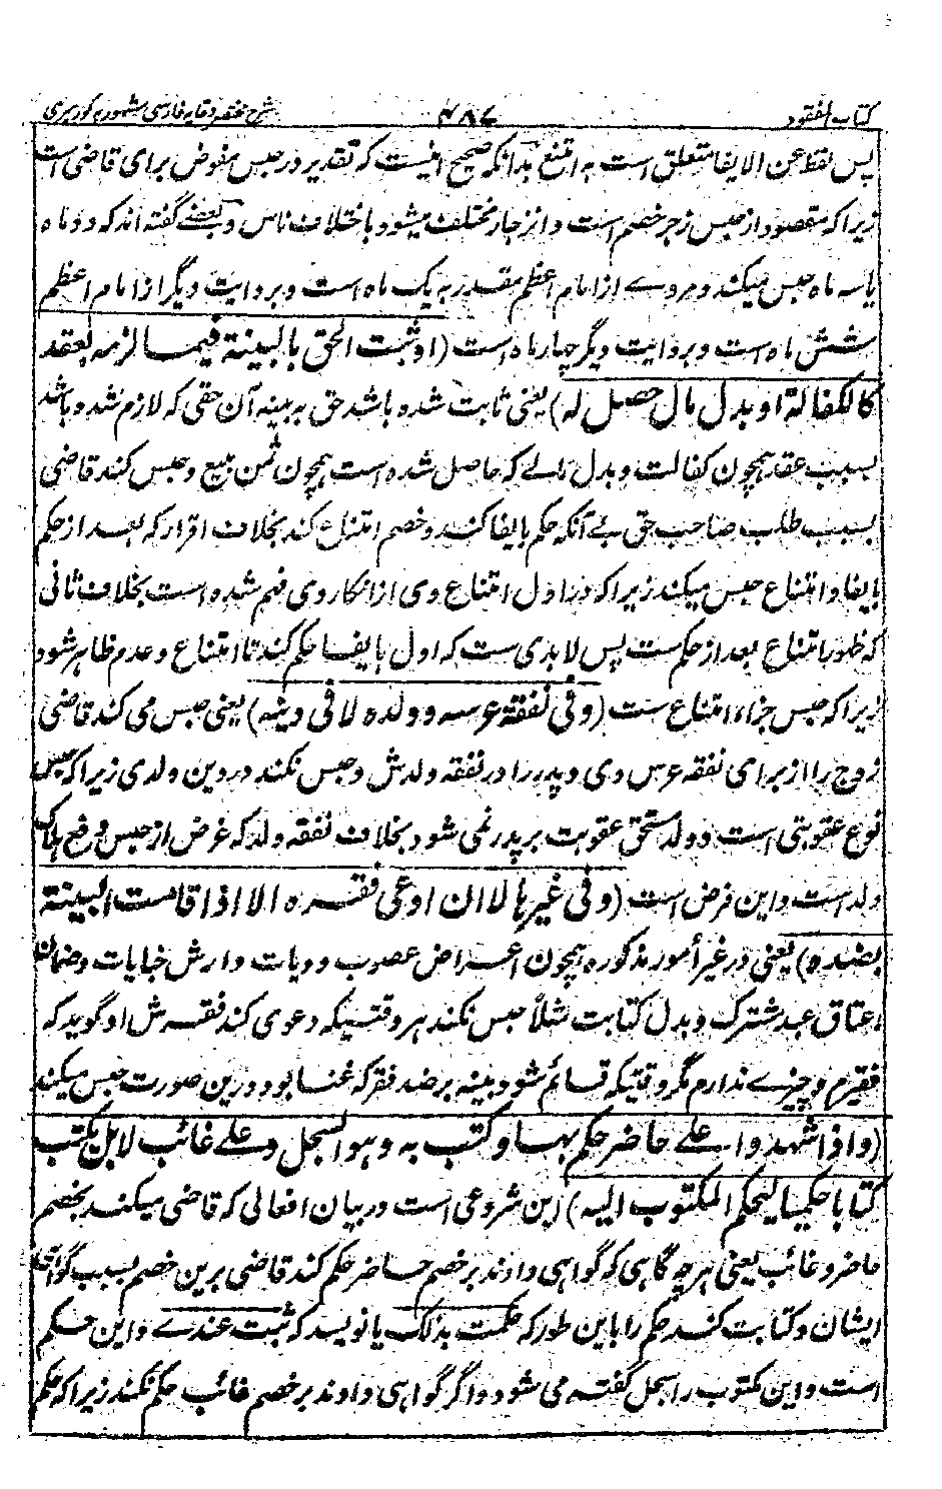 کتاب المفقود ۴۸۷ شرح مختصر وقایه فارسی مشهور به کورسری
پس لفظ عن الایفا متعلق است به امتنع بدانکه صحیح اینست که تقدیر در حبس مفوض برای قاضی است
زیرا که مقصود از حبس زجر خصم است و انزجار مختلف میشود باختلاف ناس و بعضے گفته اند که دو ماه
یا سه ماه حبس میکند و مروے از امام اعظم مقدر به یک ماه است و بروایت دیگر از امام اعظم
شش ماه است و بروایت دیگر چهار ماه است (او ثبت الحق بالبینة فیما لزمه بعقد
کالکفالة او بدل مال حصل له) یعنی ثابت شده باشد حق به بینه آن حقی که لازم شده باشد
بسبب عقد همچون کفالت و بدل مالے که حاصل شده است همچون ثمن مبیع و حبس کند قاضی
بسبب طلب صاحب حق بے آنکه حکم بایفا کند و خصم امتناع کند بخلاف اقرار که بعد از حکم
بایفا و امتناع حبس میکند زیرا که در اول امتناع وی از انکار وی فهم شده است بخلاف ثانی
که ظهور امتناع بعد از حکمست پس لا بدی ست که اول بایفا حکم کند تا امتناع و عدم ظاهر شود
زیرا که حبس جزاء امتناع ست (و فی نفقة عرسه و ولده لا فی دینه) یعنی حبس می کند قاضی
زوج را از برای نفقه عرس وی و پدر را در نفقه ولدش و حبس نکند در دین ولدی زیرا که حبس
نوع عقوبتی است و ولد مستحق عقوبت بر پدر نمی شود بخلاف نفقه ولد که غرض از حبس دفع هلاک
ولد است و این فرض است (و فی غیرها لا ان ادعی فقره الا اذا قامت البینة
بضده) یعنی در غیر امور مذکوره همچون اعراض غصوب و دیات و ارش جنایات و ضمان
اعتاق عبد مشترک و بدل کتابت مثلاً حبس نکند هر وقتیکه دعوی کند فقرش او گوید که
فقیرم و چیزے ندارم مگر وقتیکه قائم شود بینه بر ضد فقر که غنا بود درین صورت حبس میکند
(واذا شهدوا علے حاضر حکم بها و کتب به وهو السجل و علے غائب لا بل یکتب
کتابا حکمیا لیحکم المکتوب الیه) این شروعی است در بیان افعالی که قاضی میکند بخصم
حاضر و غائب یعنی هر چه گاهی که گواهی دادند بر خصم حاضر حکم کند قاضی برین خصم بسبب گواهی
ایشان و کتابت کند حکم را باین طور که حکمت بذلک یا نویسد که ثبت عندے و این حکم
است و این مکتوب را سجل گفته می شود و اگر گواهی دادند بر خصم غائب حکم نکند زیرا که حکم